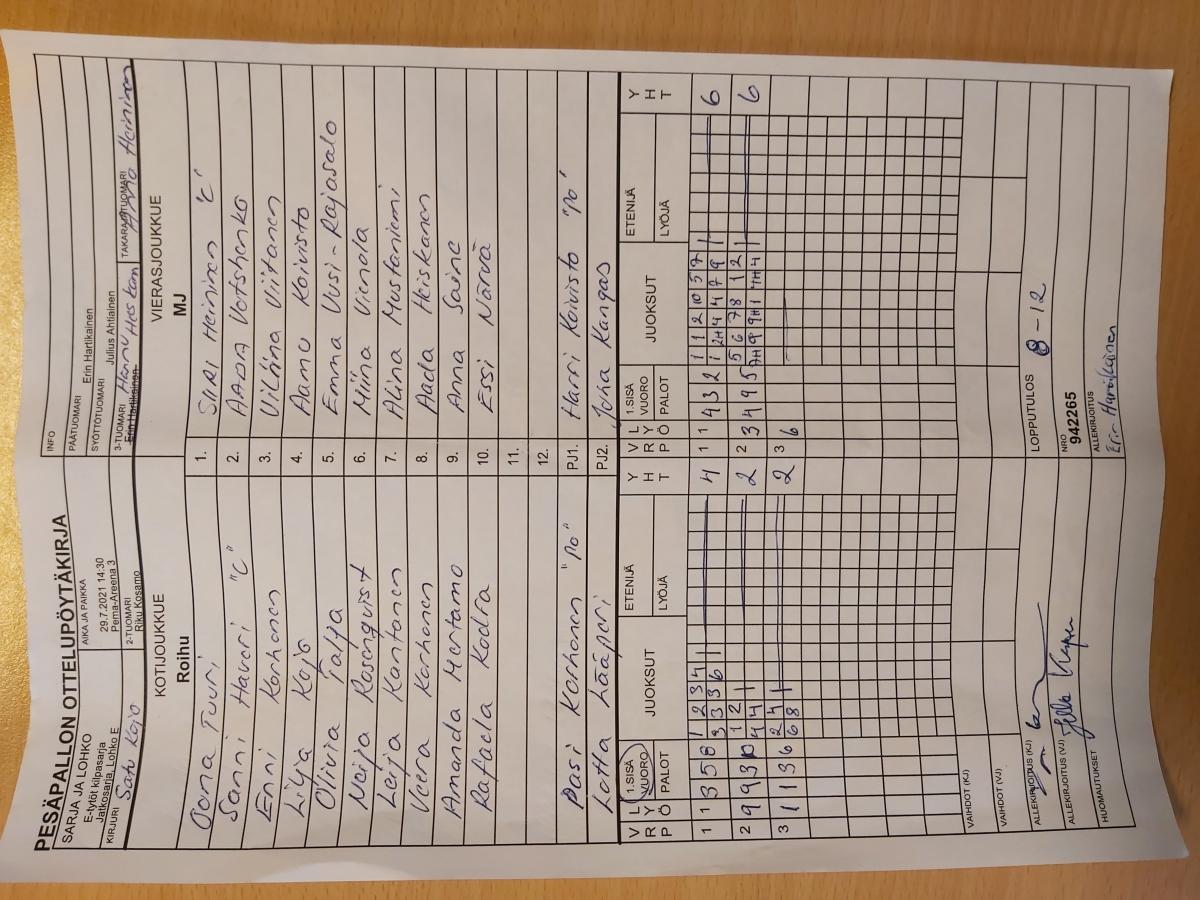 PESÄPALLON OTTELUPÖYTÄKIRJA
SARJA JA LOHKO
E-tytöt kilpasarja
Jatkosarja, Lohko E
AIKA JA PAIKKA
29.7.2021 14:30
Pema-Areena 3
KIRJURI Satu Kojo
2-TUOMARI
Riku Kosamo
INFO
PÄÄTUOMARI Erin Hartikainen
SYÖTTÖTUOMARI Julius Ahtiainen
3-TUOMARI
Erin Hartikainen
TAKARAJATUOMARI Heininen
KOTIJOUKKUE
Roihu
VIERASJOUKKUE
MJ
Oona Tuuri 1. SIIRI Heininen "C"
Sanni Haveri "C" 2. AADA Vertshenko
Enni Korhonen 3. Viliina Viitanen
Lilja Kojo 4. Aamu Koivisto
Olivia Talja 5. Emma Uusi-Rajasalo
Neija Rosenquist 6. Miina Vienola
Lerja Kantanen 7. Alina Mustaniemi
Veera Korhonen 8. Aada Heiskanen
Amanda Mertamo 9. Anna Saine
Rafaela Kodra 10. Essi Närvä
11.
12.
Pasi Korhonen "PO" PJ1. Harri Koivisto "PO"
Lotta Lääperi PJ2. Juha Kangas
VRP LYÖ 1.SISÄ VUORO PALOT JUOKSUT ETENIJÄ LYÖJÄ YHT VRP LYÖ 1.SISÄ VUORO PALOT JUOKSUT ETENIJÄ LYÖJÄ YHT
1 1 3 5 8 1 2 3 4 4 1 1 4 3 2 1 1 2 10 5 7 6
3 3 3 6 1 2H 4 4 7 9
2 9 9 3 10 1 2 2 2 3 4 9 5 5 6 7 8 1 2 6
4 4 7H 9 9H 1 4
3 1 1 3 6 2 4 2 3 6
6 8
VAIHDOT (KJ)
VAIHDOT (VJ)
ALLEKIRJOITUS (KJ)
ALLEKIRJOITUS (VJ)
HUOMAUTUKSET
LOPPUTULOS 8-12
NRO
942265
ALLEKIRJOITUS
Erin Hartikainen